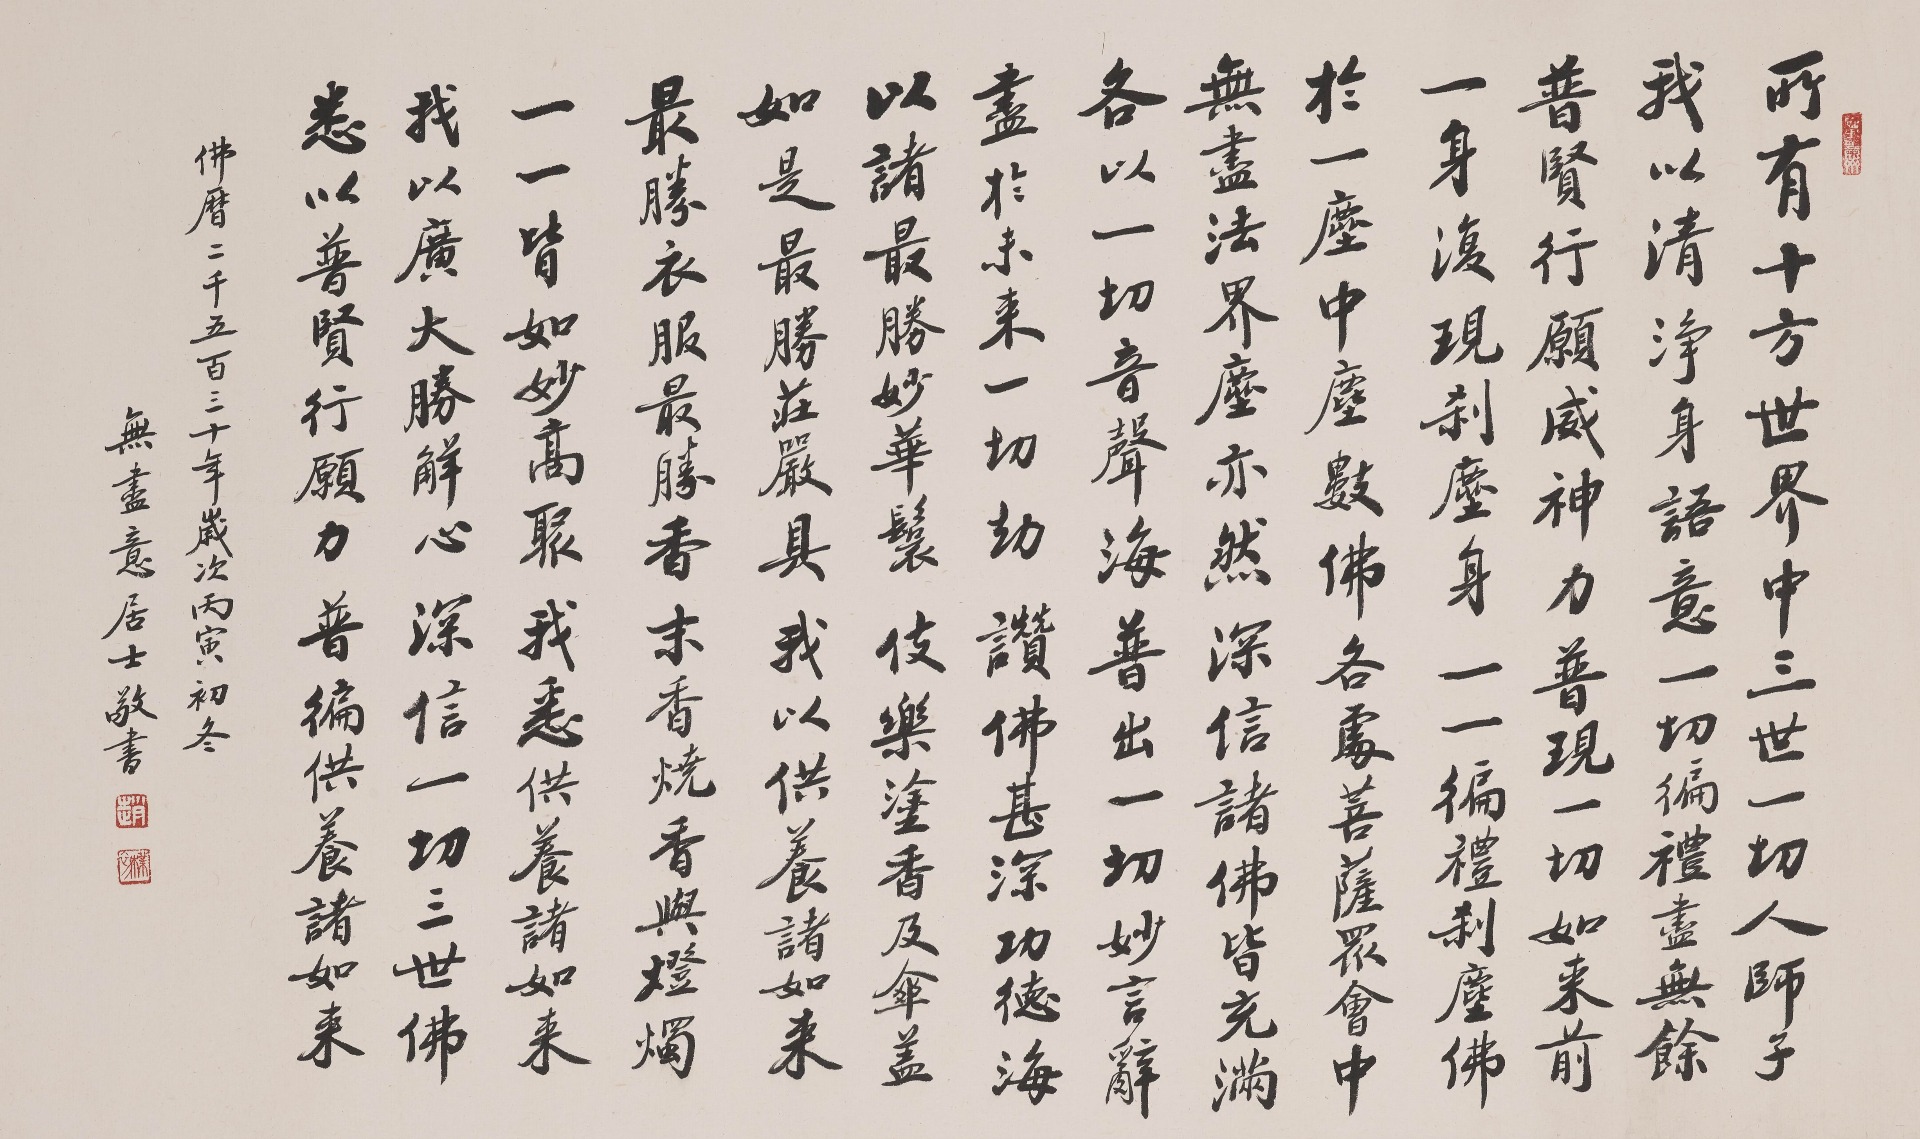 所有十方世界中三世一切人師子
我以清淨身語意一切徧禮盡無餘
普賢行願威神力普現一切如来前
一身復現刹塵身一一徧禮刹塵佛
於一塵中塵數佛各處菩薩眾會中
無盡法界塵亦然深信諸佛皆充滿
各以一切音聲海普出一切妙言辭
盡於未来一切劫讚佛甚深功德海
以諸最勝妙華鬘伎樂塗香及傘盖
如是最勝莊嚴具我以供養諸如来
最勝衣服最勝香末香燒香與燈燭
一一皆如妙高聚我悉供養諸如来
我以廣大勝解心深信一切三世佛
悉以普賢行願力普徧供養諸如来
佛曆二千五百三十年歲次丙寅初冬
無盡意居士敬書